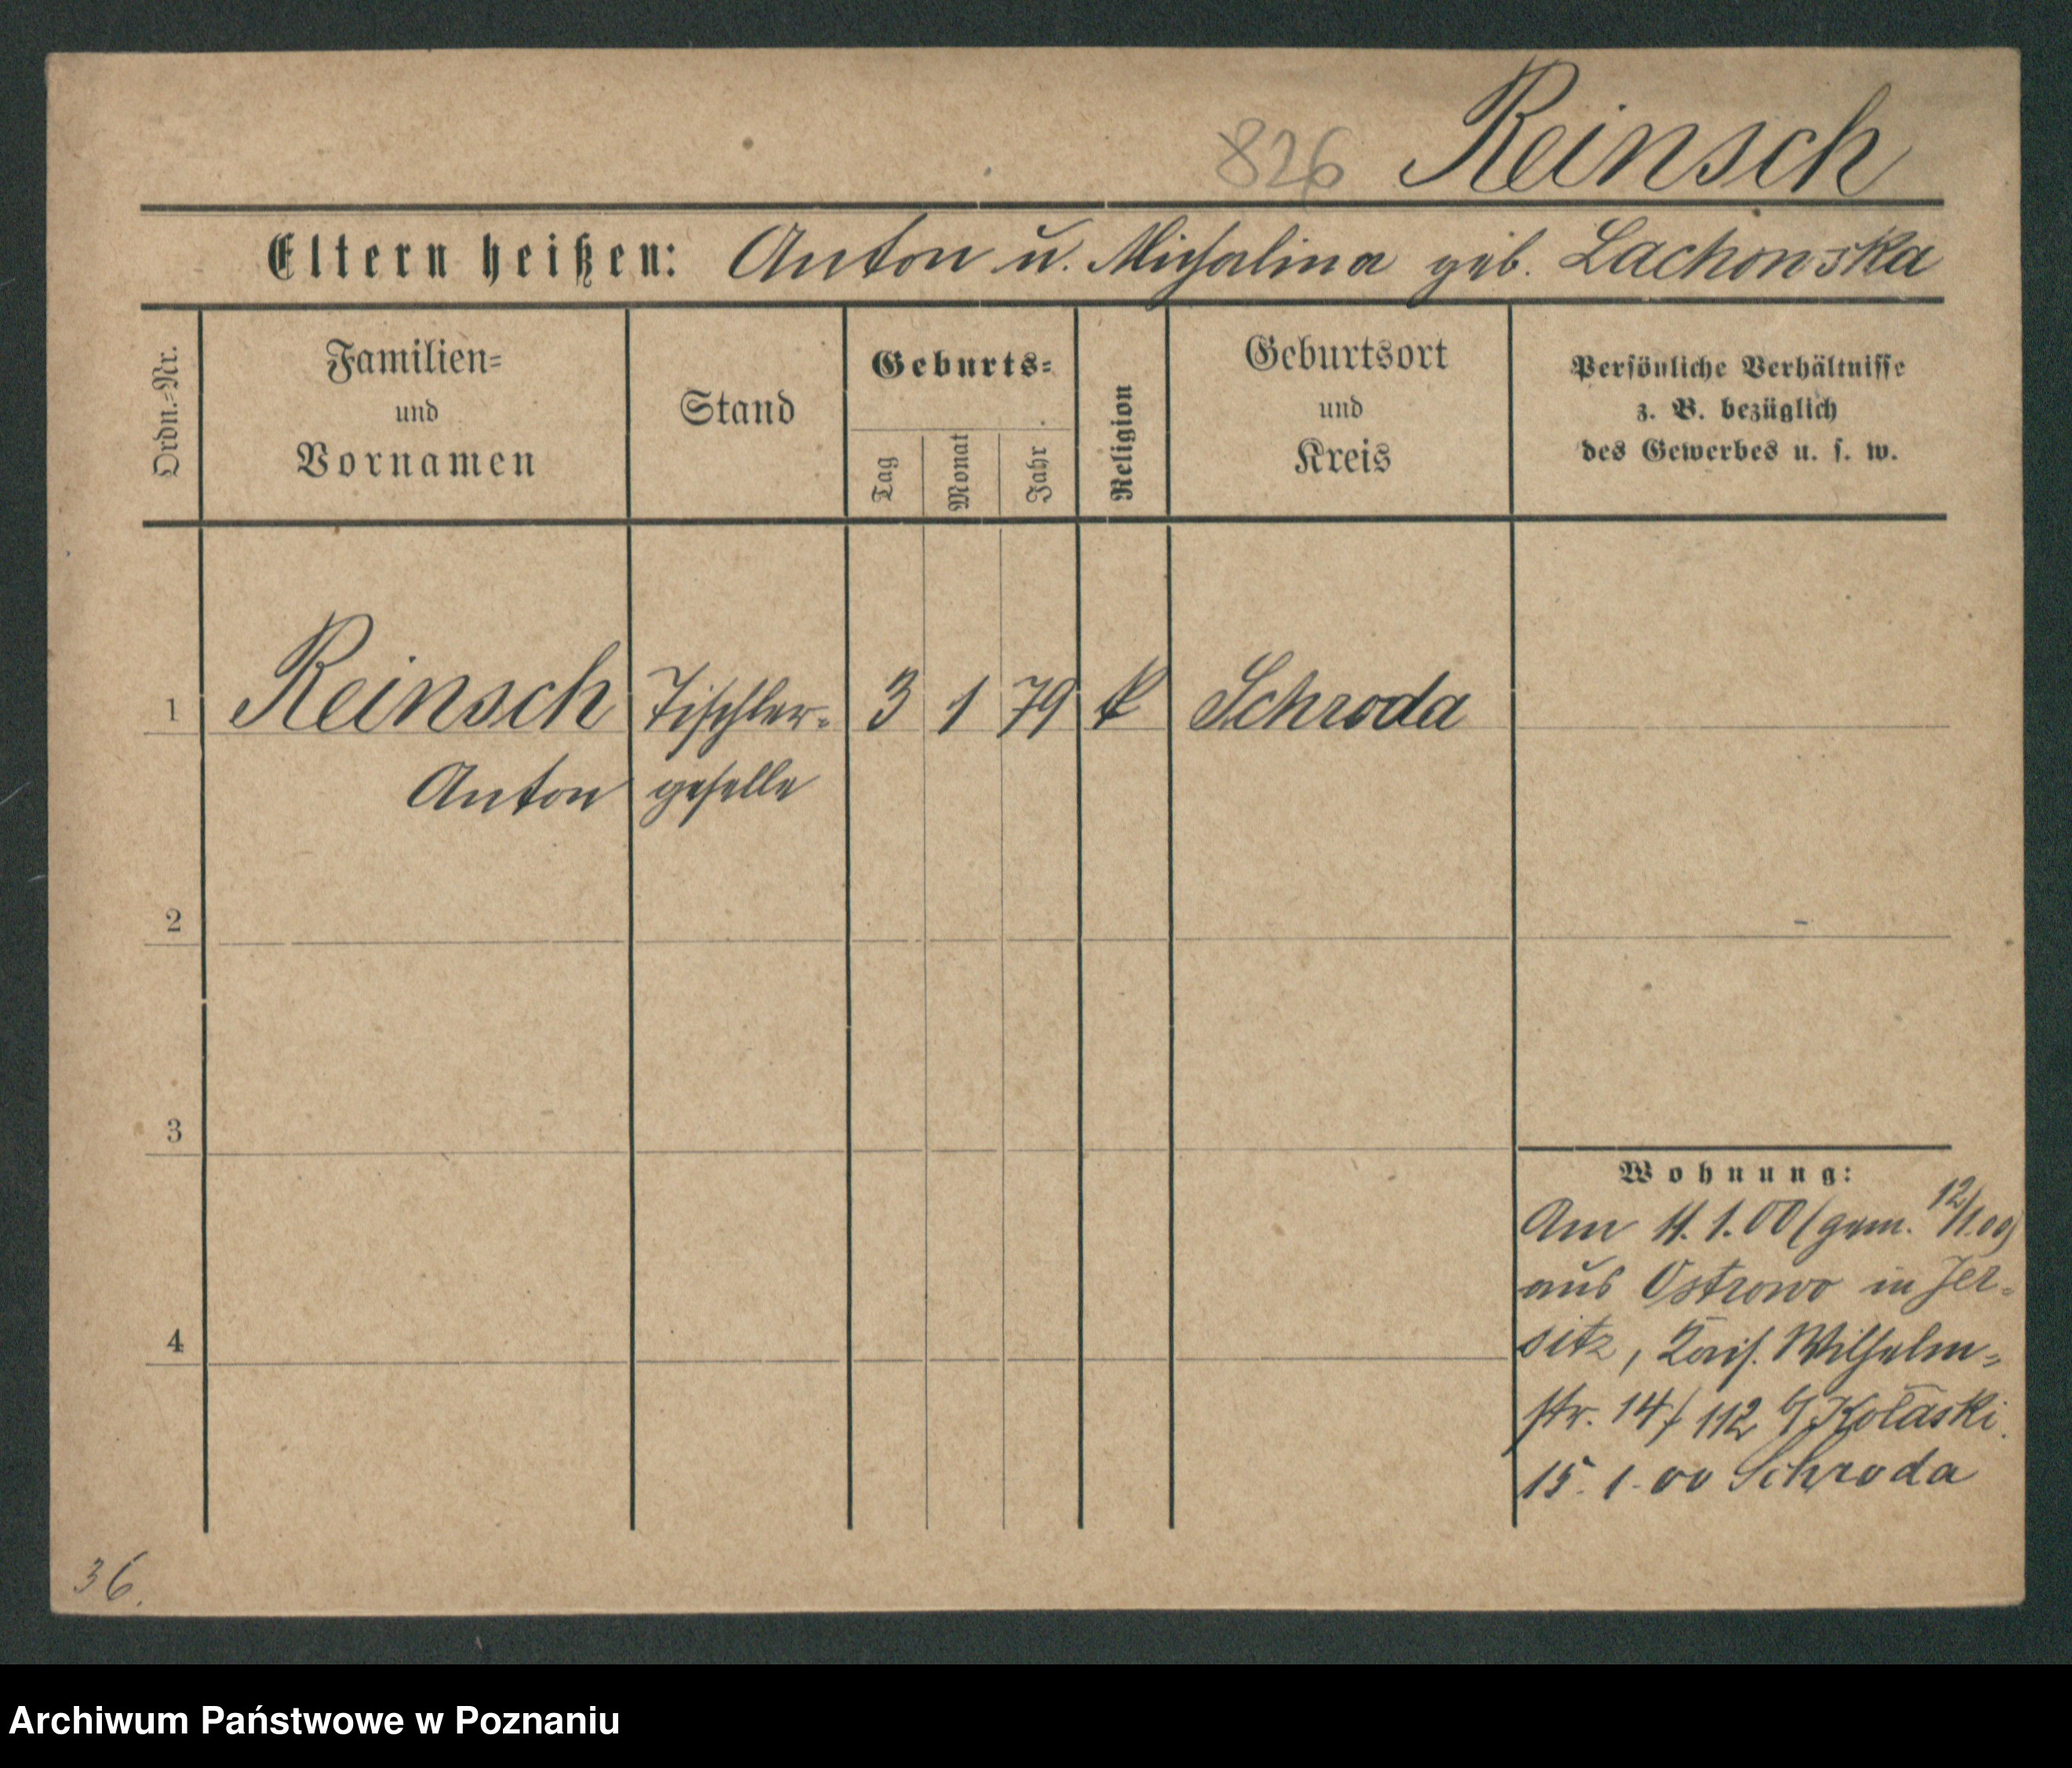 826 Reinsch
Eltern heißen: Anton u. Michalina geb. Lachowska
Ordn.-Nr.
Familien-
und
Vornamen
Stand
Geburts-
Tag
Monat
Jahr
Religion
Geburtsort
und
Kreis
Persönliche Verhältnisse
z. B. bezüglich
des Gewerbes u. s. w.
1 Reinsch Tischler- 3 1 79 k Schroda
Anton geselle
2
3
4
Wohnung:
Am 11.1.00 (gem. 12/1.00)
aus Ostrowo in Jer-
sitz, Kais. Wilhelm-
str. 14/112 b/Kolaski.
15.1.00 Schroda
36.
Archiwum Państwowe w Poznaniu